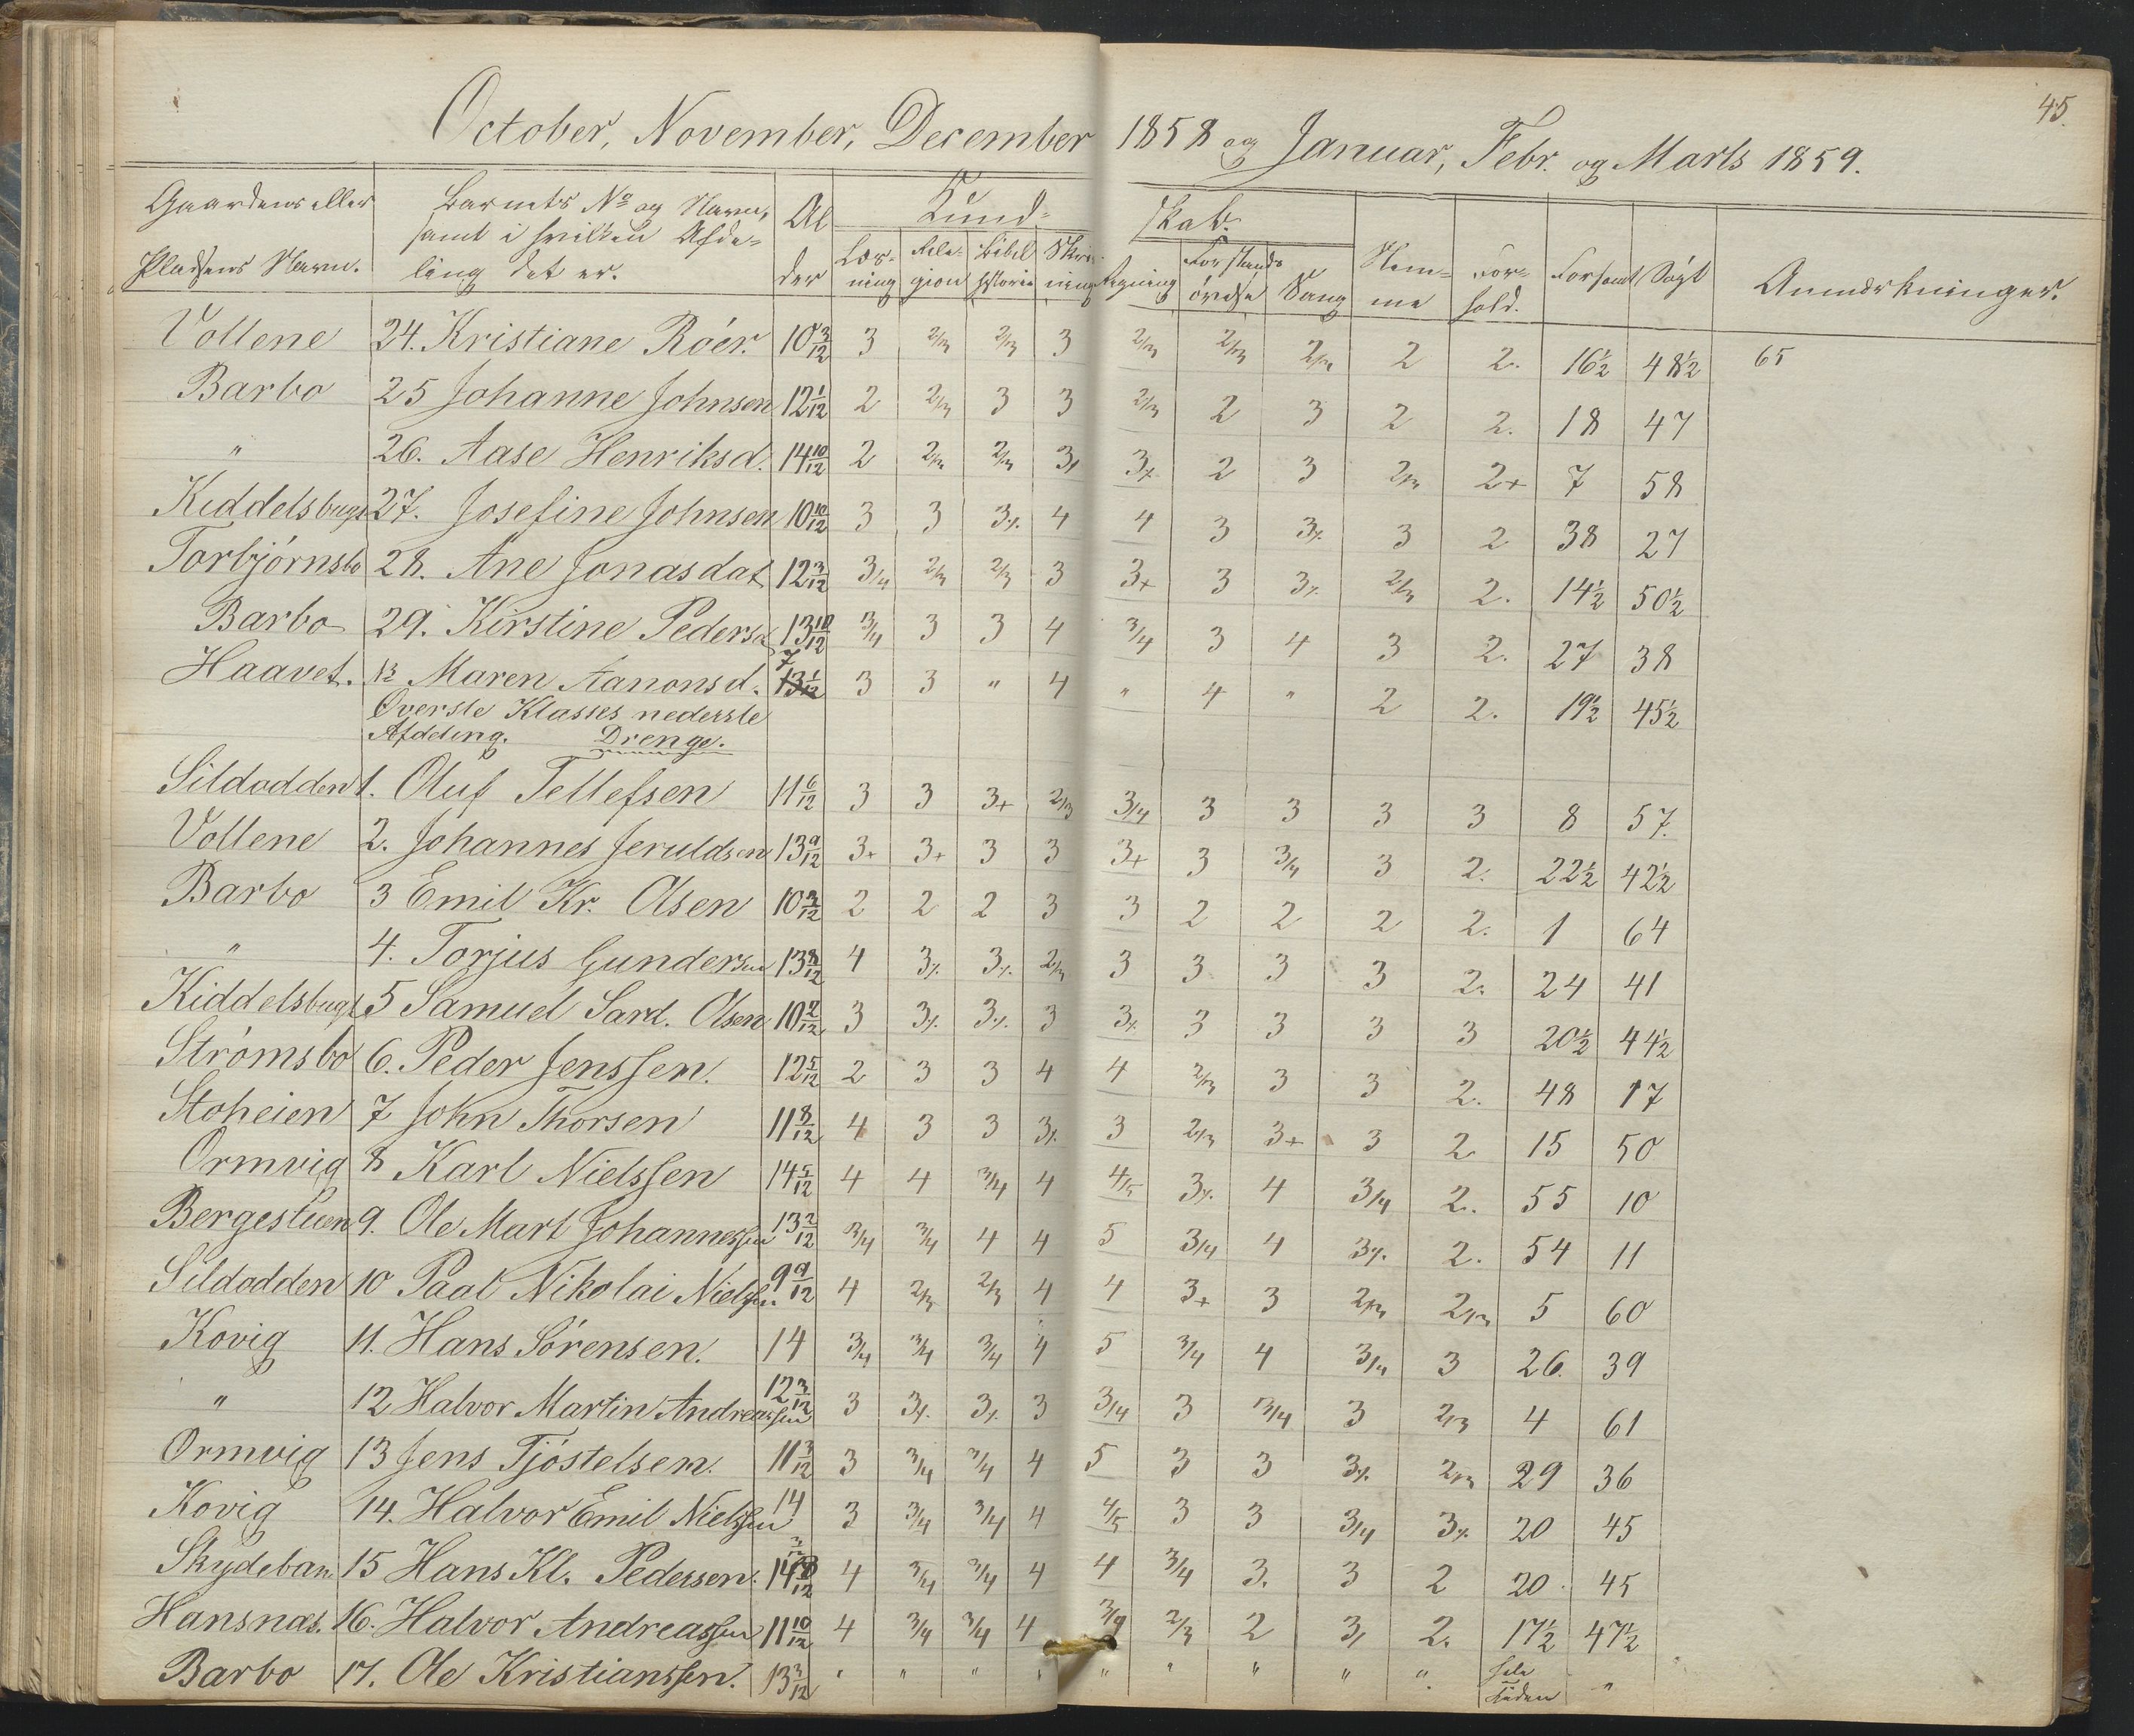 45.
October, November, December 1858 og Januar, Febr. og Marts 1859.
Gaardens eller Pladsens Navn. Barnets No og Navn, samt i hvilken Afdeling det er. Alder Kundskab. Læsning Religion Bibelhistorie Skrivning Regning Forstandsøvelse Sang Nemme Forhold. Forsømt Søgt Anmærkninger.
Vollene 24. Kristiane Róér. 10 3/12 3 2/3 2/3 3 2/3 2/3 2/3 2 2. 16½ 48½ 65
Barbo 25 Johanne Johnsen 12 1/12 2 2/3 3 3 2/3 2 3 2 2. 18 47
" 26. Aase Henriksd. 14 10/12 2 2/3 2/3 3 2 3 2/3 2+ 7 58
Kiddelsbugt 27. Josefine Johnsen 10 10/12 3 3 3% 4 4 3 3% 3 2 38 27
Torbjórnsbo 28. Ane Jonasdat 12 3/12 3/4 2/3 2/3 3 3+ 3 3% 2/3 2. 14½ 50½
Barbo 29. Kirstine Pedersd 13 10/12 3/4 3 3 4 3/4 3 4 3 2. 27 38
Haavet. Maren Aanonsd. 7 13 1/12 3 3 " 4 " 4 " 2 2. 19½ 45½
Øverste Klasses nederste
Afdeling. Drenge.
Sildodden 1. Oluf Tellefsen 11 6/12 3 3 3+ 2/3 3/4 3 3 3 3 8 57.
Vollene 2. Johannes Jeruldsen 13 9/12 3+ 3+ 3 3 3+ 3 3 2. 22½ 42½
Barbo 3 Emil Kr. Olsen 10 3/12 2 2 2 3 3 2 2 2 2. 1 64
" 4. Torjus Gundersen 13 8/12 4 3% 3% 2/3 3 3 3 3 2. 24 41
Kiddelsbugt 5 Samuel Sard. Olsen 10 2/12 3 3% 3% 3 3% 3 3 3 3 20½ 44½
Strómsbo 6. Peder Jenssen. 12 5/12 2 3 3 4 4 2/3 3 3 2. 48 17
Stoheien 7 John Thorsen 11 8/12 4 3 3 3% 3 2/3 3+ 3 2 15 50
Ormvig 8 Karl Nielssen 14 5/12 4 4 3/4 4 4/5 3% 4 3/4 2. 55 10
Bergestuen 9. Ole Mart Johannessen 13 2/12 3/4 3/4 4 4 5 3/4 4 3% 2. 54 11
Sildodden 10 Paal Nikolai Nielssen 9 9/12 4 2/3 2/3 4 4 3+ 3 2/3 2/3 5 60
Kovig 11. Hans Sórensen. 14 3/4 3/4 3/4 4 5 3/4 4 3/4 3 26. 39
" 12 Halvor Martin Andreassen 12 3/12 3 3% 3% 3 3/4 3 3/4 3 2/3 4 61
Ormvig 13 Jens Tjóstelsen. 11 3/12 3 3/4 3/4 4 5 3 3 3% 2/3 29 36
Kovig 14. Halvor Emil Nielssen 14 3 3/4 3/4 4 4/5 3 3 3/4 3% 20 45
Skydeban. 15 Hans Kl. Pedersen. 4 3/4 3/4 4 4 3/4 3. 3 2 20 45
Hansnæs. 16. Halvor Andreassen 11 10/12 4 3/4 3/4 4 2/3 2 3 2. 17½ 47½
Barbo 17. Ole Kristianssen. 13 3/12 " " " " " " " " " hele Tiden "